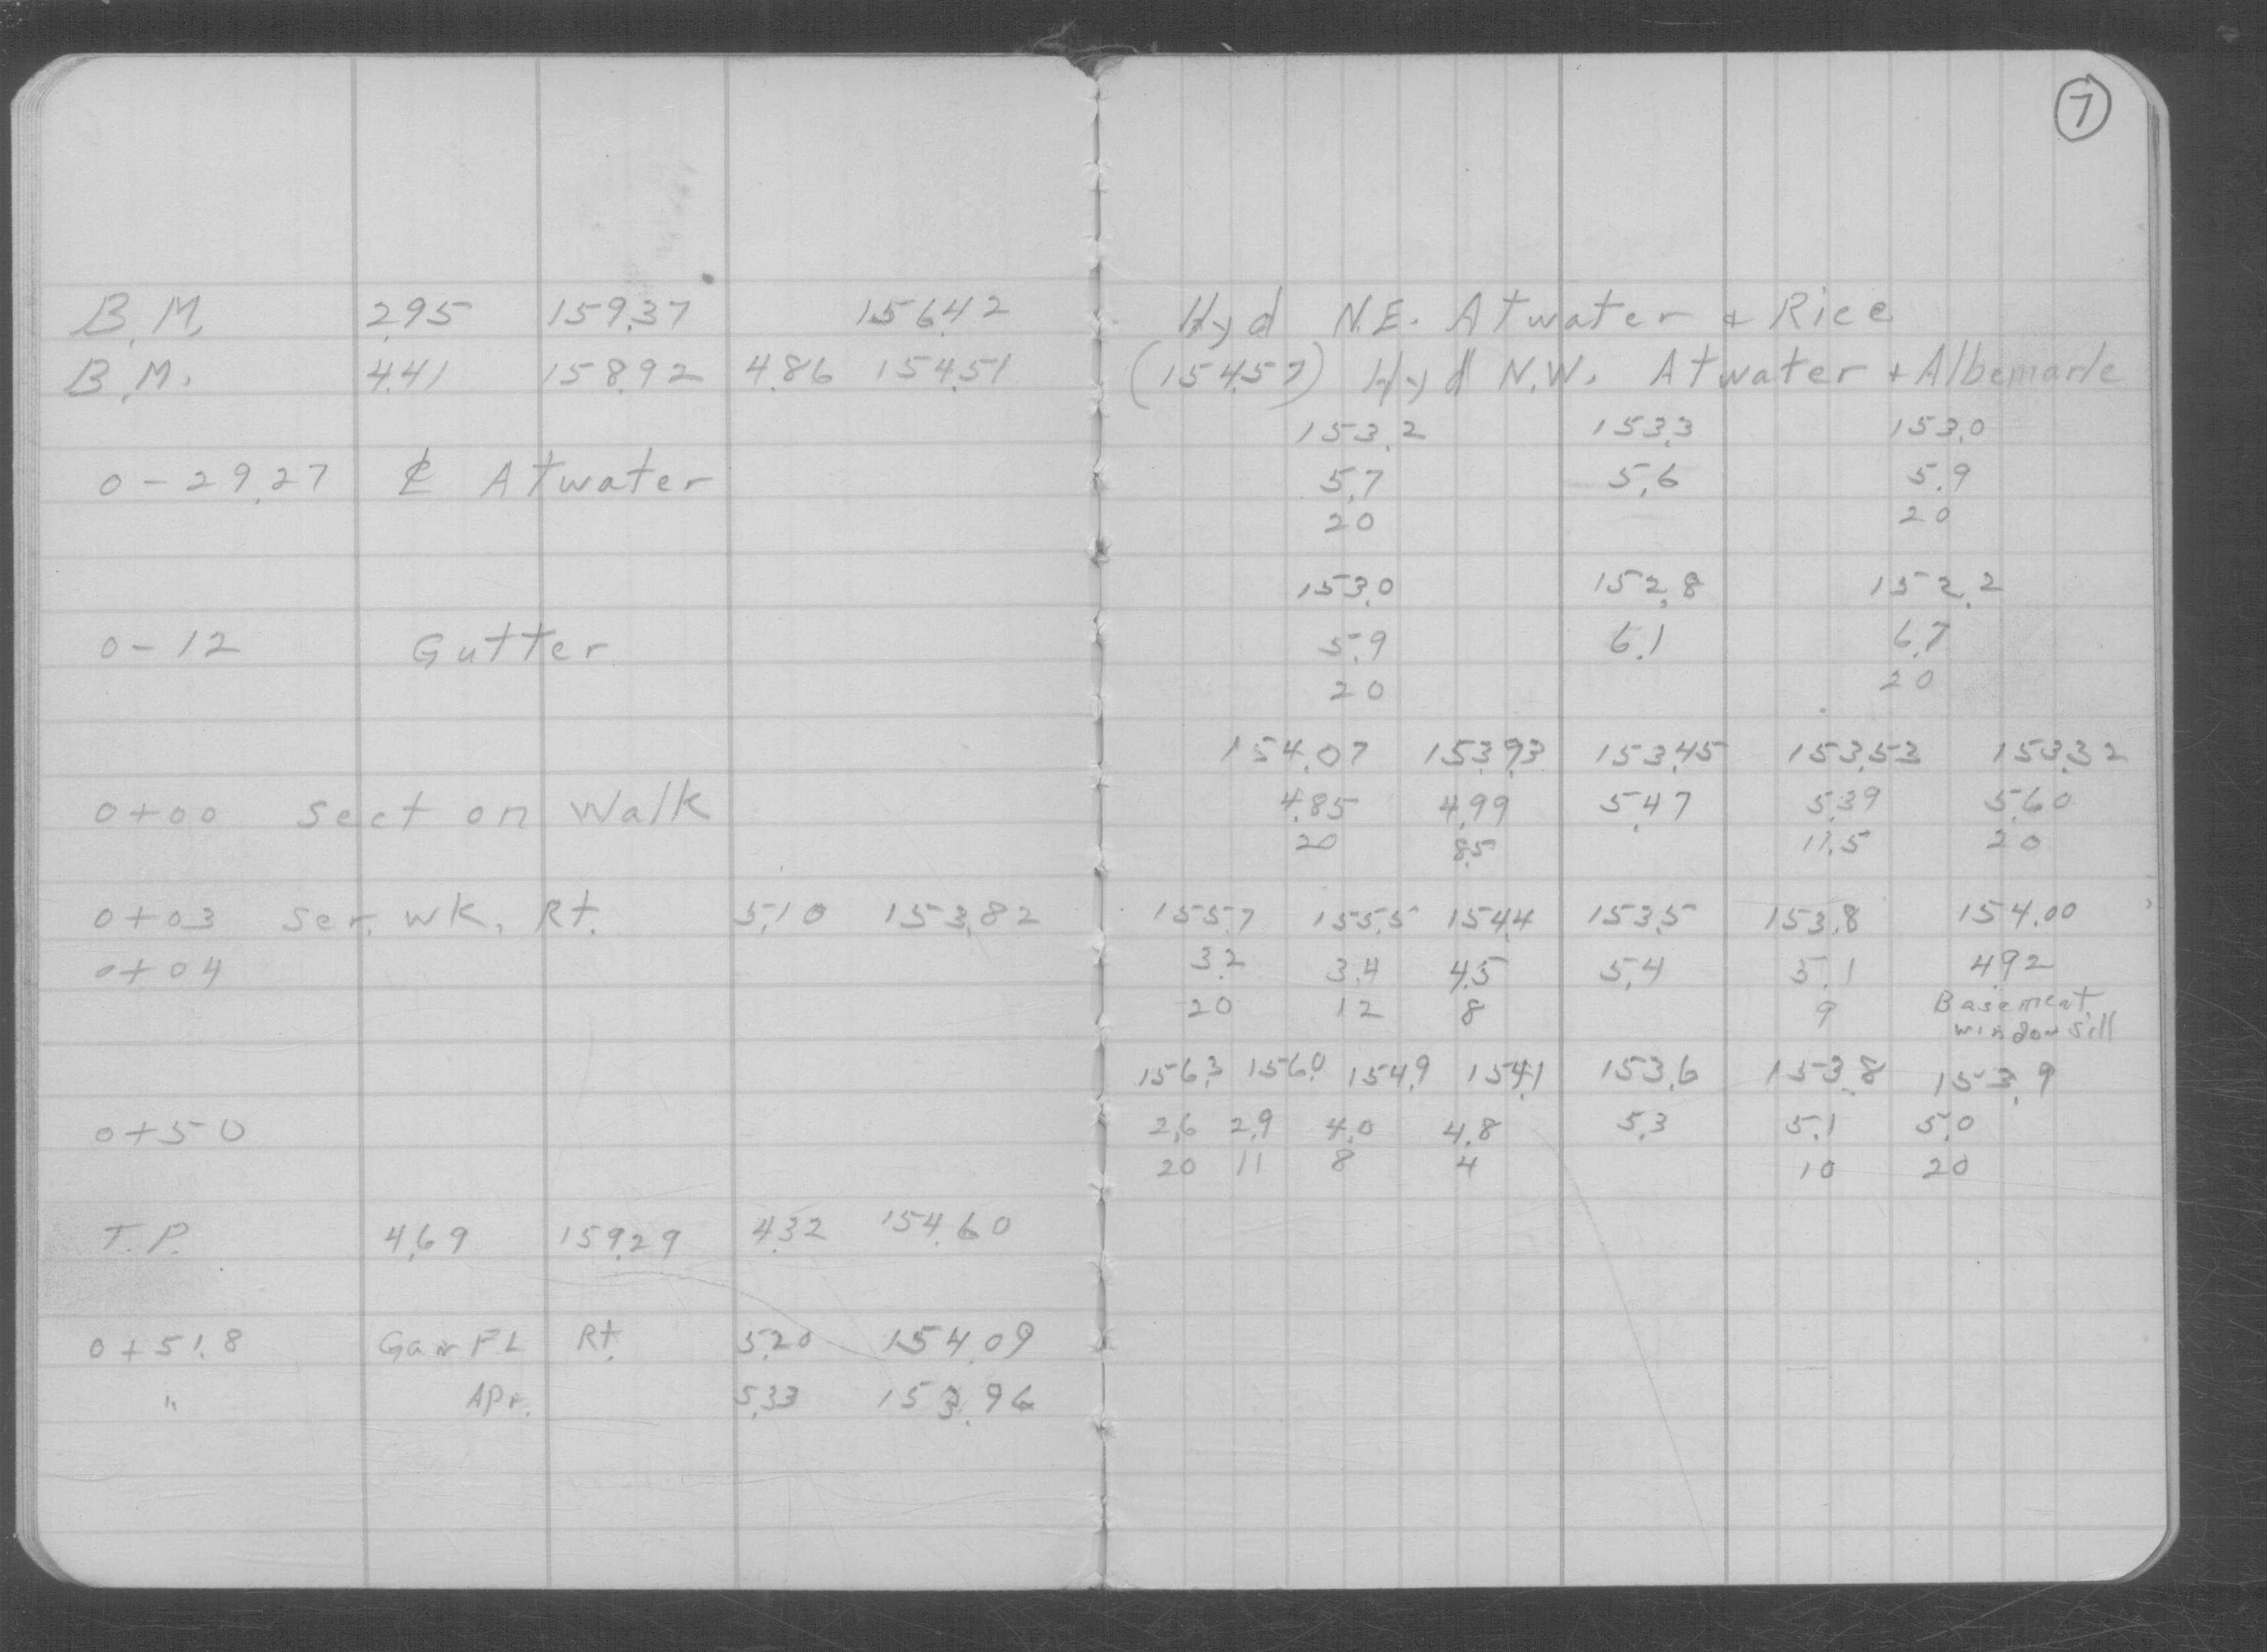 7
B.M. 2.95 159.37 156.42 Hyd N.E. Atwater & Rice
B.M. 4.41 158.92 4.86 154.51 (154.57) Hyd N.W. Atwater + Albemarle
153.2 153.3 153.0
0-29.27 ℄ Atwater 5.7 5.6 5.9
20 20
153.0 152.8 152.2
0-12 Gutter 5.9 6.1 6.7
20 20
154.07 153.93 153.45 153.53 153.32
0+00 Sect on Walk 4.85 4.99 5.47 5.39 5.60
20 8.5 11.5 20
0+03 Ser. Wk. Rt. 5.10 153.82 155.7 155.5 154.4 153.5 153.8 154.00
0+04 3.2 3.4 4.5 5.4 5.1 4.92
20 12 8 9 Basement
window sill
156.3 156.0 154.9 154.1 153.6 153.8 153.9
0+50 2.6 2.9 4.0 4.8 5.3 5.1 5.0
20 11 8 4 10 20
T.P. 4.69 159.29 4.32 154.60
0+51.8 Gar FL Rt. 5.20 154.09
" Apr. 5.33 153.96